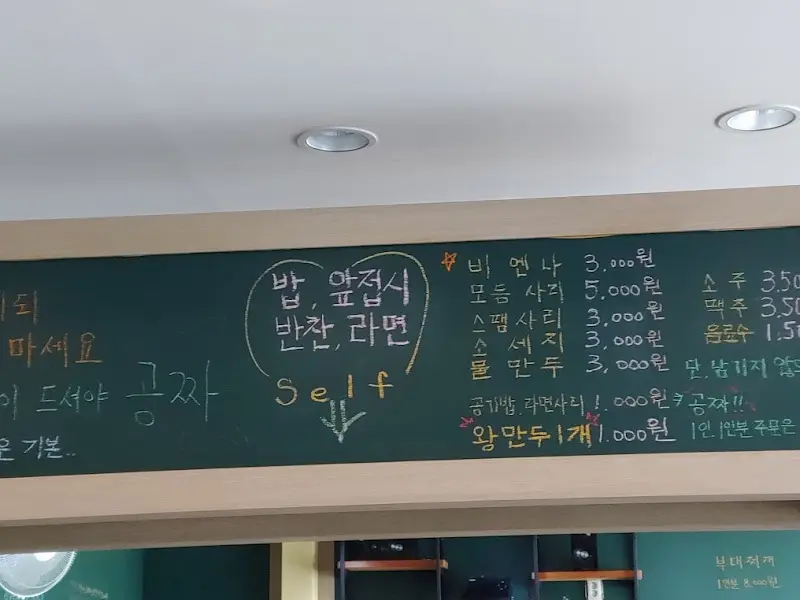 마세요
이 드셔야 공짜
기본..
밥, 앞접시
반찬, 라면
Self
비엔나 3,000원
모듬사리 5,000원
스팸사리 3,000원
소세지 3,000원
물만두 3,000원
공기밥, 라면사리 1,000원 공짜!!
왕만두 1개 1,000원
소주 3.50
맥주 3.50
음료수 1.50
단, 남기지 않
1인. 1인분 주문은
부대찌개
1인분 8,000원